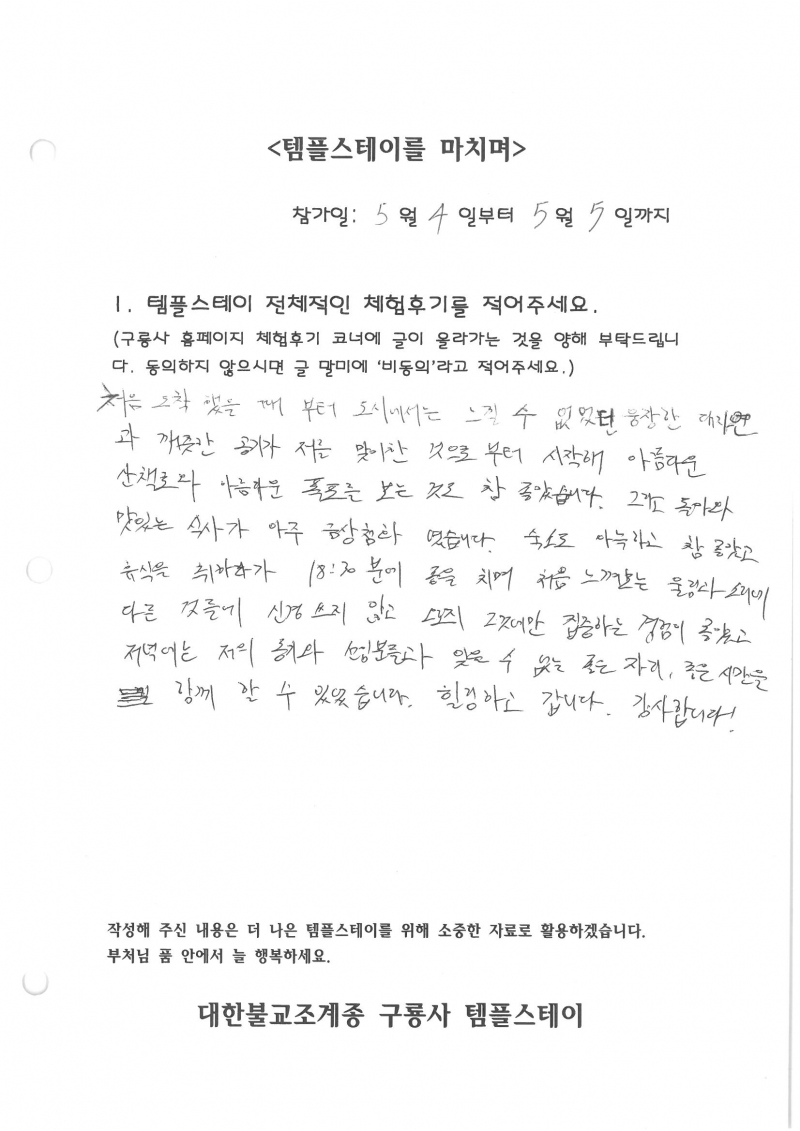 <템플스테이를 마치며>
참가일: 5 월 4 일부터 5월 5 일까지
1. 템플스테이 전체적인 체험후기를 적어주세요.
(구룡사 홈페이지 체험후기 코너에 글이 올라가는 것을 양해 부탁드립니
다. 동의하지 않으시면 글 말미에 '비동의'라고 적어주세요.)
처음 도착 했을 때 부터 도시에서는 느낄 수 없었던 웅장한 대자연
과 깨끗한 공기가 저를 맞이한 것으로 부터 시작해 아름다운
산책로와 아름다운 폭포를 보는 것도 참 좋았습니다. 그리고
맛있는 식사가 아주 금상첨화 였습니다. 숙소도 아늑하고 참 좋았고
휴식을 취하다가 18:30 분에 종을 치며 처음 느껴보는 울림과 소리에
다른 것들에 신경 쓰지 않고 오로지 그것에만 집중하는 경험이 좋았고
저녁에는 저의 동기와 선임분들과 잊을 수 없는 좋은 자리, 좋은 시간을
함께 할 수 있었습니다. 힐링하고 갑니다. 감사합니다!
작성해 주신 내용은 더 나은 템플스테이를 위해 소중한 자료로 활용하겠습니다.
부처님 품 안에서 늘 행복하세요.
대한불교조계종 구룡사 템플스테이